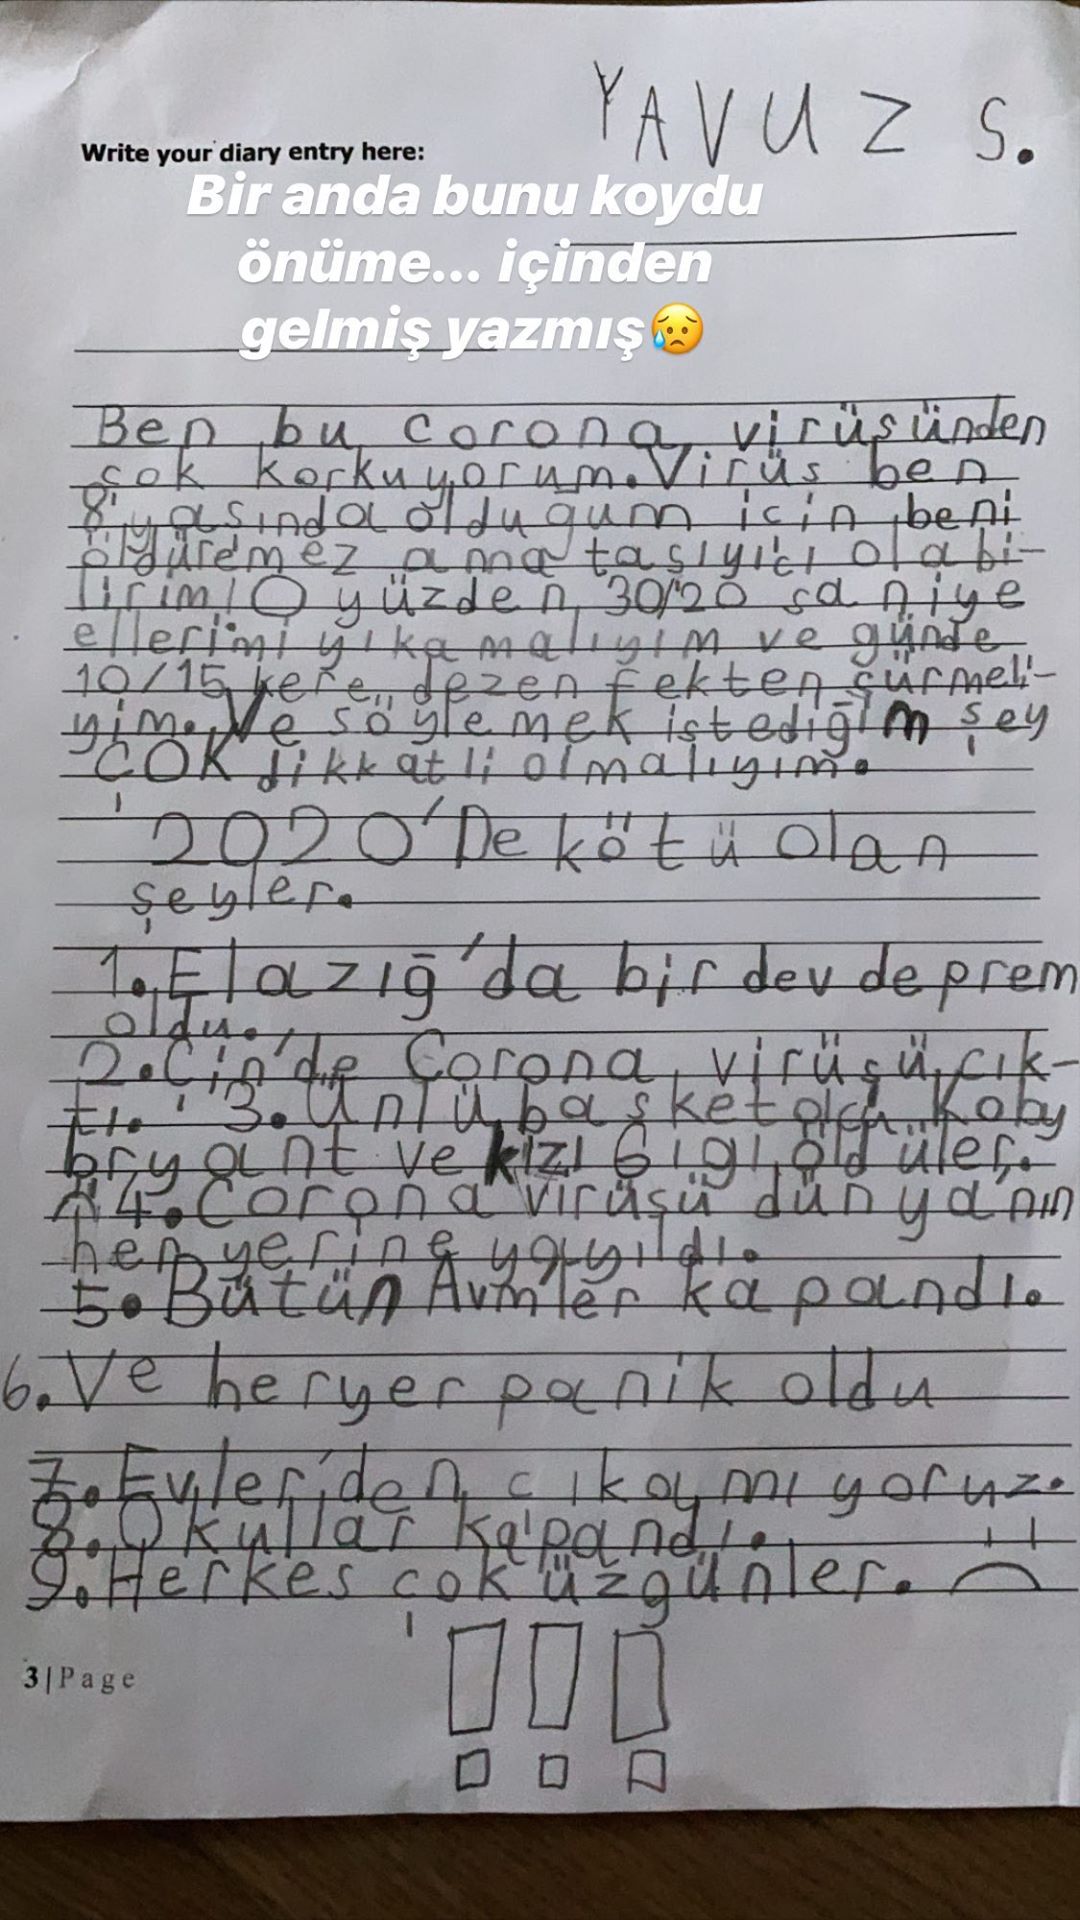 YAVUZ S.
Write your diary entry here:
Bir anda bunu koydu
önüme... içinden
gelmiş yazmış😥
Ben bu corona virüsünden
çok korkuyorum. Virüs ben
8 yaşında olduğum için beni
öldüremez ama taşıyıcı olabi-
lirim! O yüzden 30/20 saniye
ellerimi yıkamalıyım ve günde
10/15 kere dezenfekten sürmeli-
yim. Ve söylemek istediğim şey
ÇOK dikkatli olmalıyım.
2020'De kötü olan
şeyler.
1. Elazığ'da bir dev deprem
oldu.
2. Çin'de Corona virüsü çık-
tı. 3. Ünlü basketolcu Koby
bryant ve kızı Gigi öldüler.
4. Corona virüsü dünya'nın
her yerine yayıldı.
5. Bütün Avm'ler kapandı.
6. Ve heryer panik oldu
7. Evler'den çıkamıyoruz.
8. Okullar kapandı.
9. Herkes çok üzgünler.
!!!
3|Page